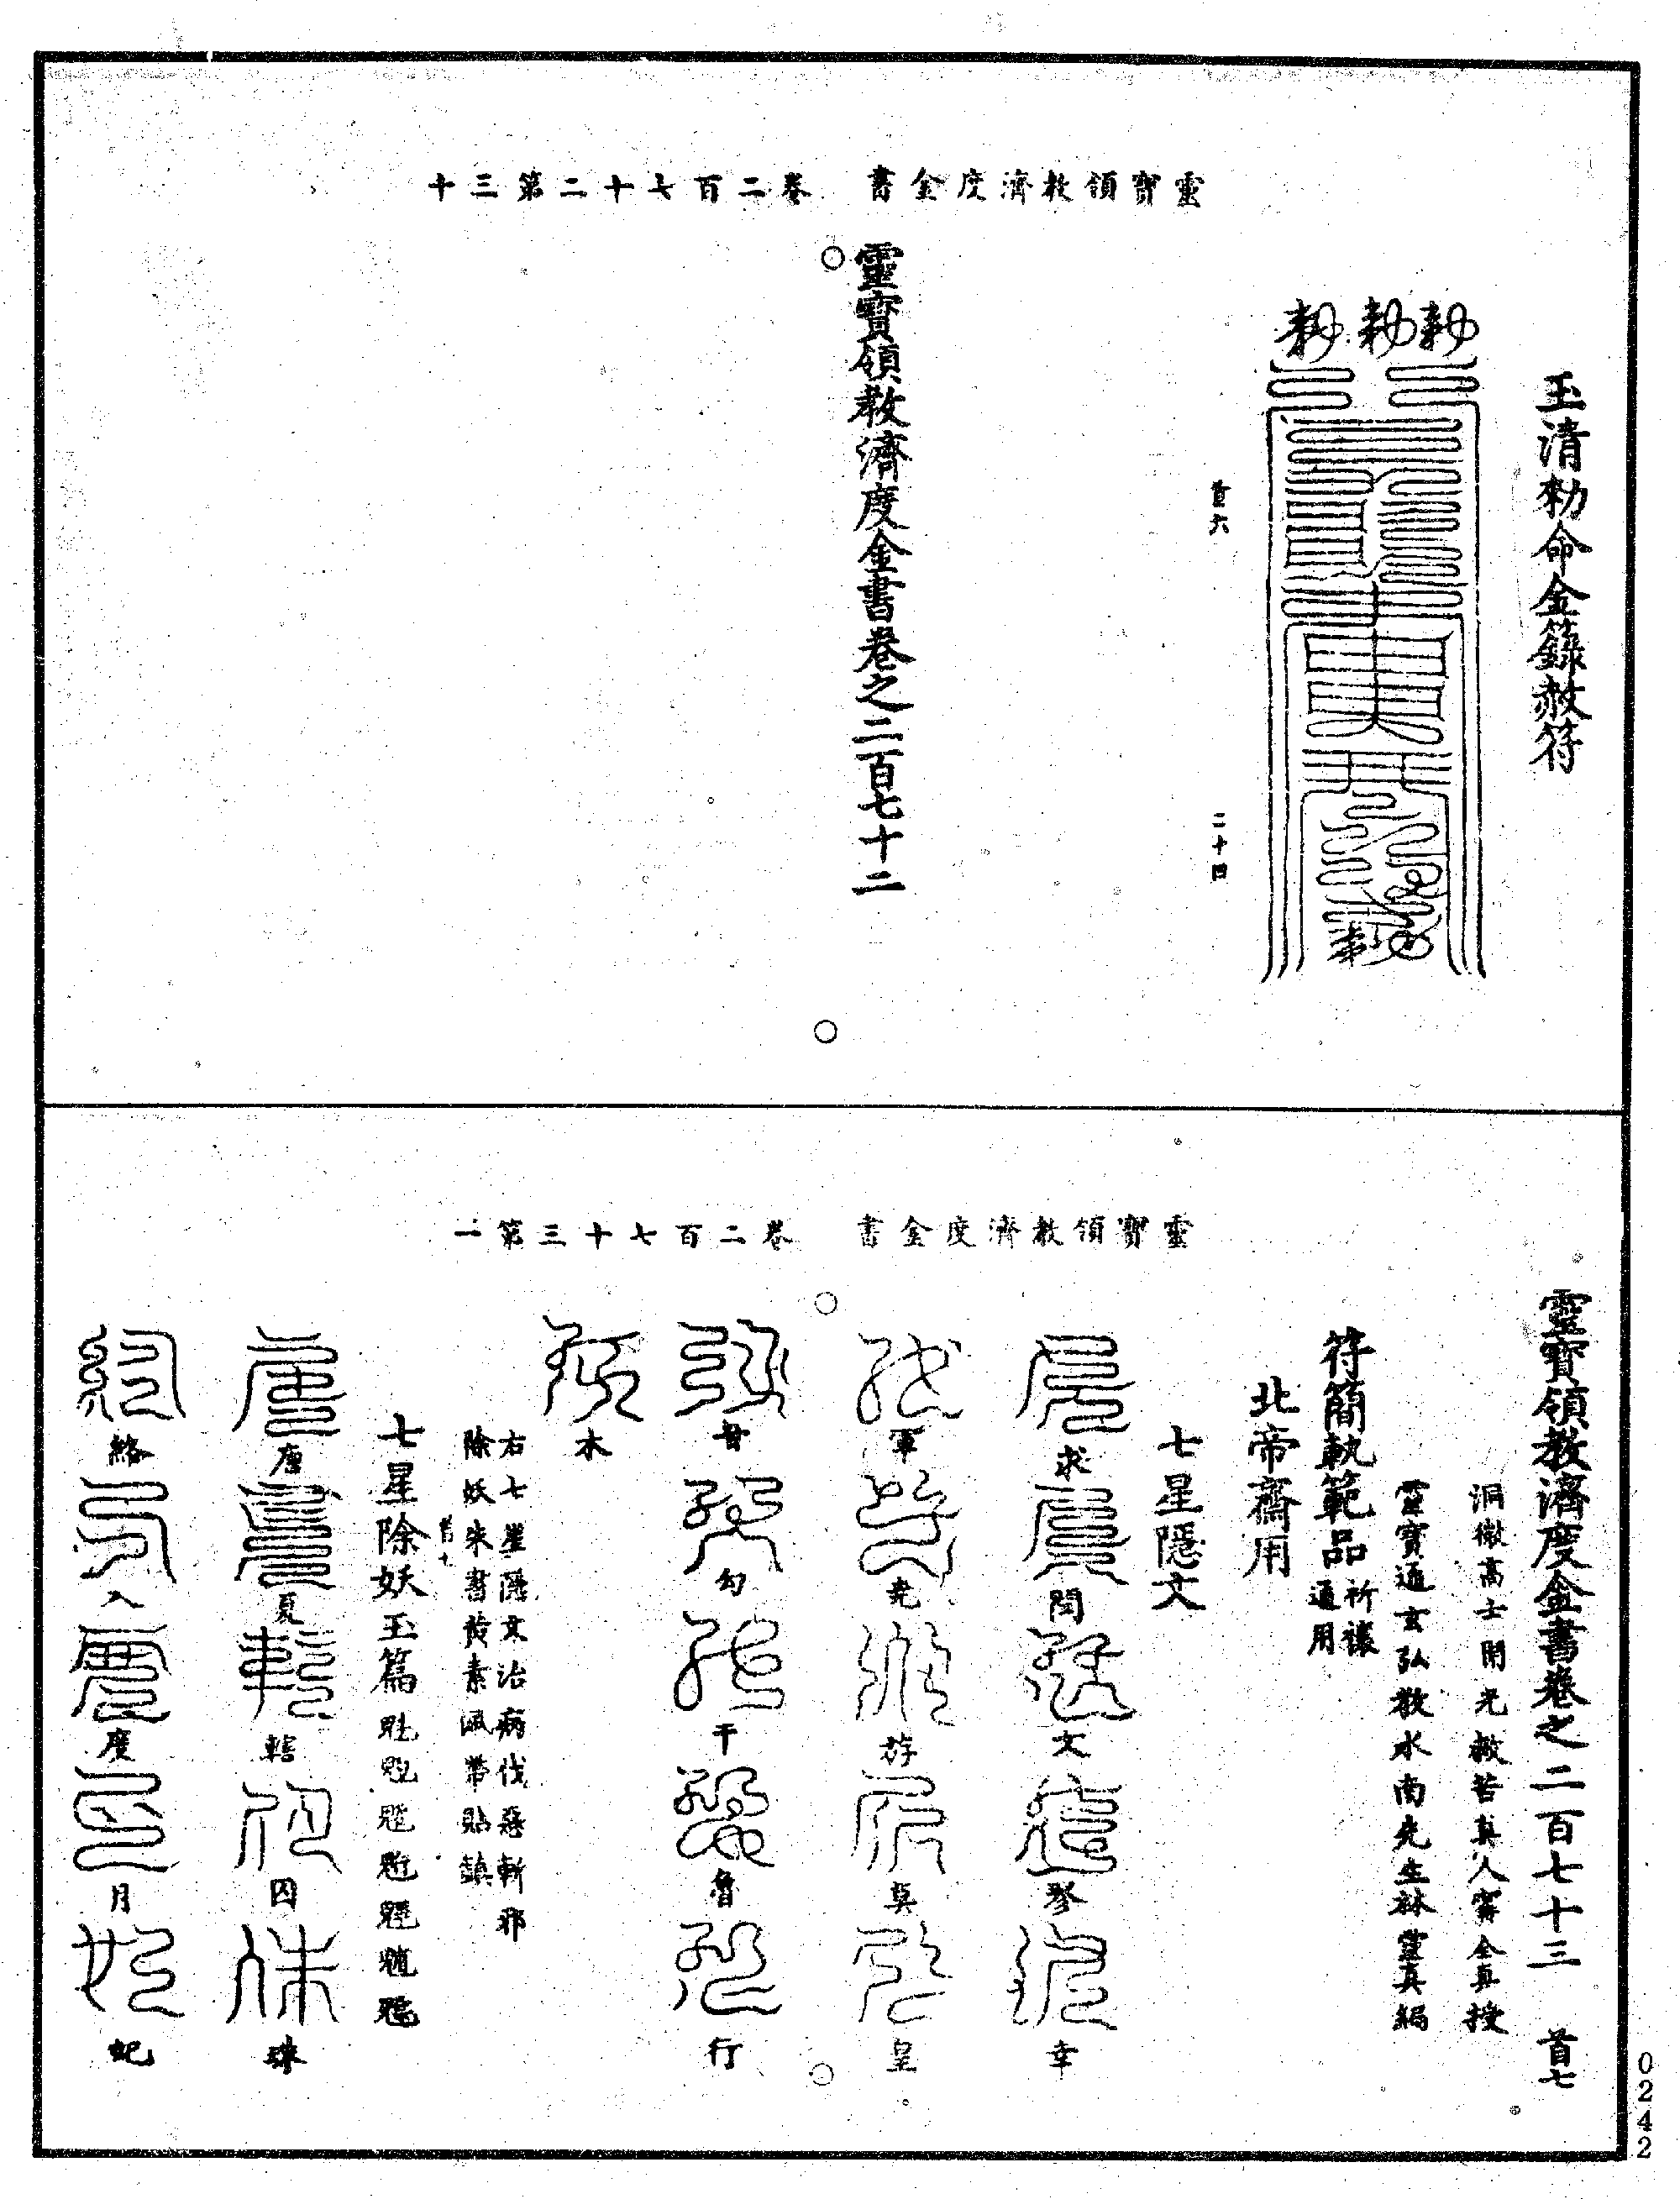 靈寶領教濟度金書　卷二百七十二第三十
玉清勑命金籙赦符
首六
二十四
靈寶領教濟度金書卷之二百七十二
靈寶領教濟度金書　卷二百七十三第一
靈寶領教濟度金書卷之二百七十三　首七
洞微高士開光救苦真人甯全真授
靈寶通玄弘教水南先生林靈真編
符簡軌範品祈禳通用
北帝齋用
七星隱文
求　閏　文　琴　幸
軍　堯　莽　莫　皇
甘　勾　干　魯　行
木
右七星隱文治病伐惡斬邪
除妖朱書黃素佩帶貼鎮
七星除妖玉篇
唐　夏　轄　囚　珠
絡　入　度　月　妃
0242